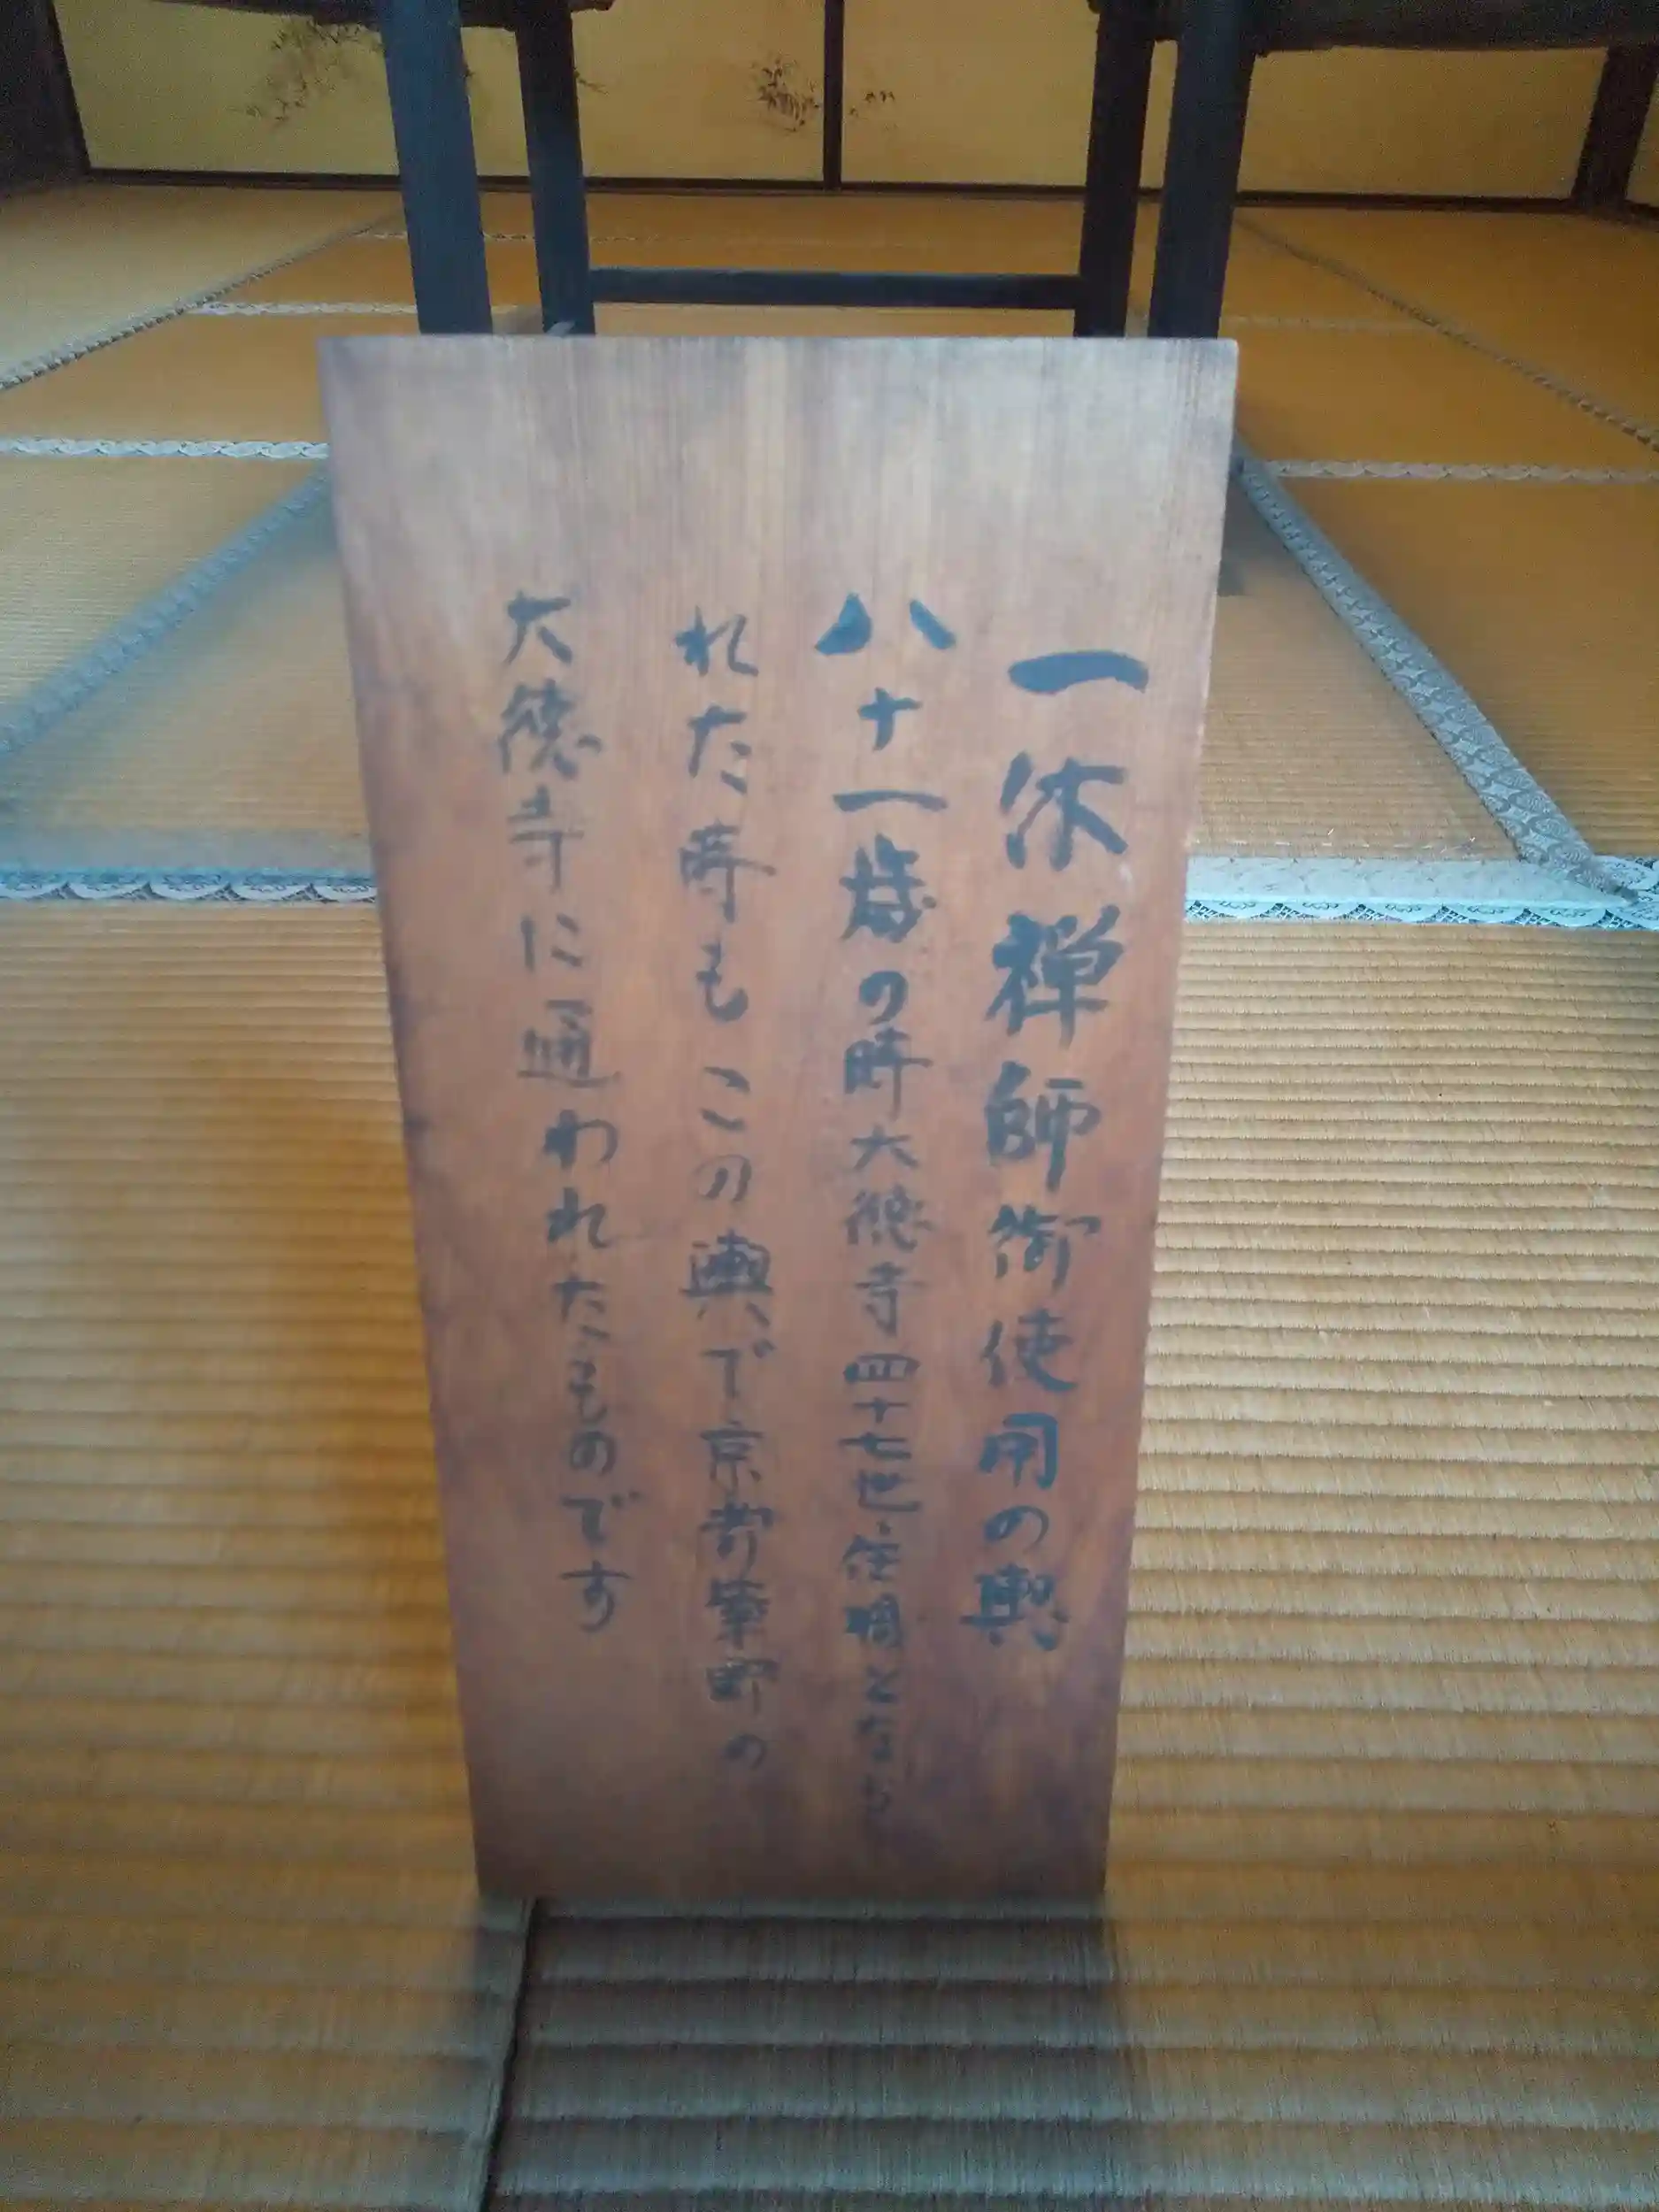 一休禅師御使用の輿
八十一歳の時大徳寺四十七世住職となら
れた時もこの輿で京都紫野の
大徳寺に通われたものです